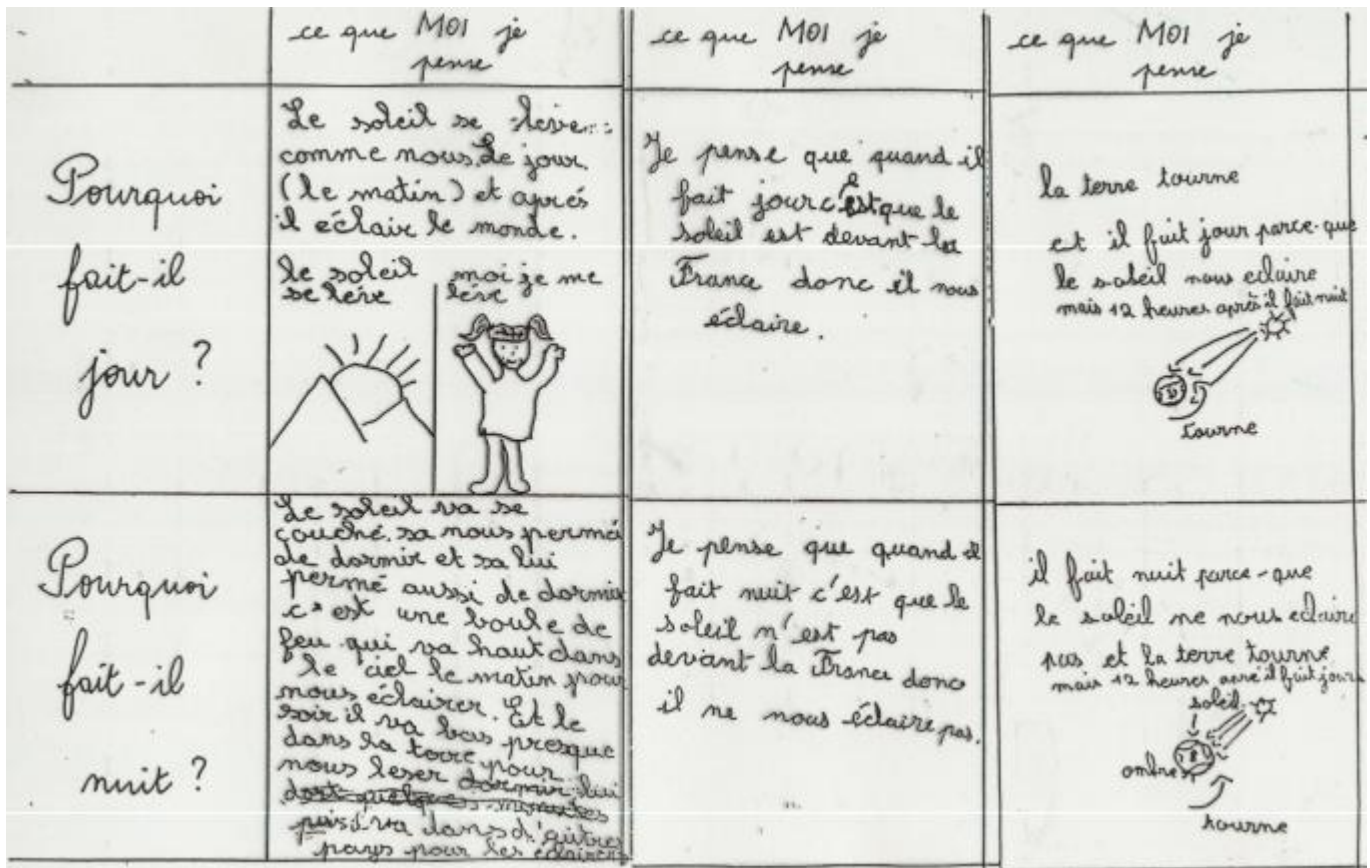 ce que MOI je
pense
ce que MOI je
pense
ce que MOI je
pense
Pourquoi
fait-il
jour ?
Le soleil se lève
comme nous. Le jour
(le matin) et aprés
il éclair le monde.
le soleil
se lève
moi je me
lève
Je pense que quand il
fait jour c'est que le
soleil est devant la
France donc il nous
éclaire.
la terre tourne
et il fait jour parce-que
le soleil nous eclaire
mais 12 heures après il fait nuit
tourne
Pourquoi
fait-il
nuit ?
Le soleil va se
couché. sa nous permé
de dormir et sa lui
permé aussi de dormir
c'est une boule de
feu qui va haut dans
le ciel le matin pour
nous éclairer. Et le
soir il va bas presque
dans la terre pour
nous leser dormir lui
dort quelques minutes
puis il va dans d'autres
pays pour les éclairer
Je pense que quand il
fait nuit c'est que le
soleil n'est pas
devant la France donc
il ne nous éclaire pas.
il fait nuit parce-que
le soleil ne nous eclaire
pas et la terre tourne
mais 12 heures il fait jour
soleil
ombre
tourne